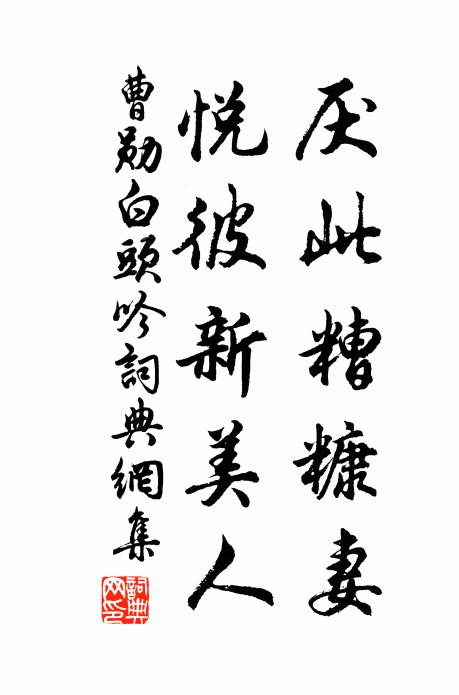 厌此糟糠妻
悦彼新美人
曹勋白頭吟詞典網集
詞典网印